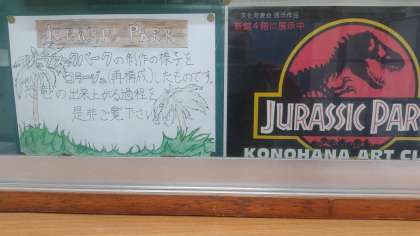 JURASSIC PARK
ジュラシックパークの制作の様子を
コラージュ(再構成)したものです。
の出来上がる過程を
是非ご覧下さい
文化発表会 展示作品
新館4階に展示中
JURASSIC PAR
KONOHANA ART CL